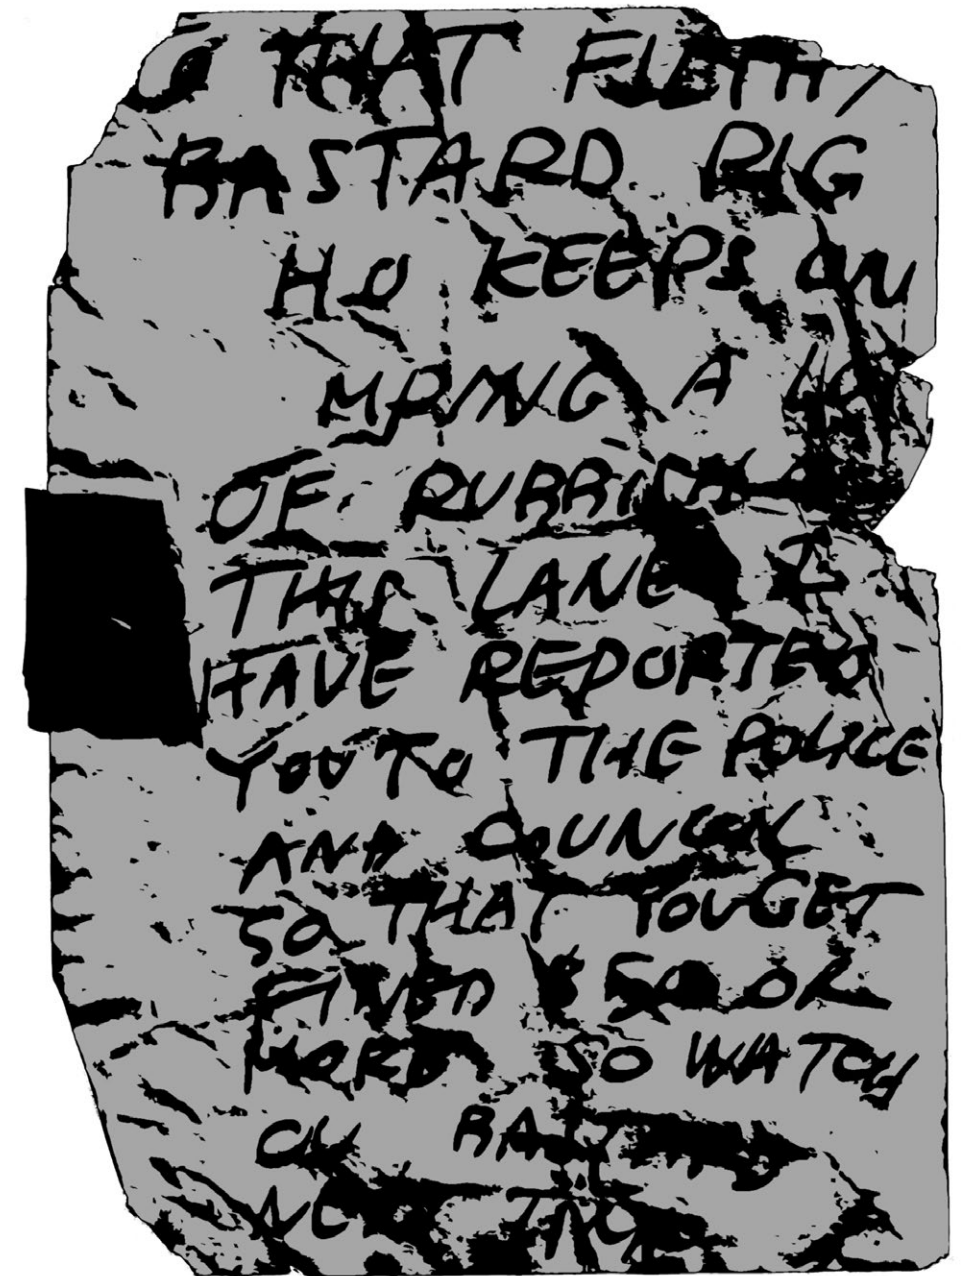 O THAT FILTHY
BASTARD PIG
HO KEEPS ON
A
OF RUBBISH
THIS LANE I
HAVE REPORTED
YOU TO THE POLICE
AND COUNCIL
SO THAT YOU GET
FINED $500 OR
MORE SO WATCH